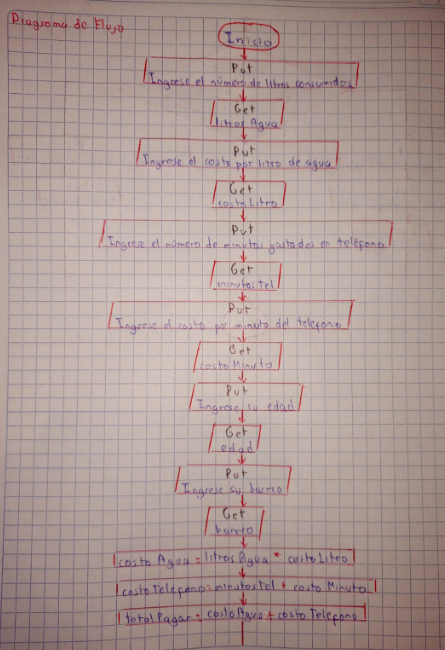 Diagrama de Flujo
Inicio
Put
Ingrese el número de litros consumidos
Get
litros Agua
Put
Ingrese el costo por litro de agua
Get
costo Litro
Put
Ingrese el número de minutos gastados en teléfono
Get
minutos Tel
Put
Ingrese el costo por minuto del telefono
Get
costo Minuto
Put
Ingrese su edad
Get
edad
Put
Ingrese su barrio
Get
barrio
costo Agua = litros Agua * costo Litro
costo Telefono = minutos Tel * costo Minuto
total Pagar = costo Agua + costo Telefono